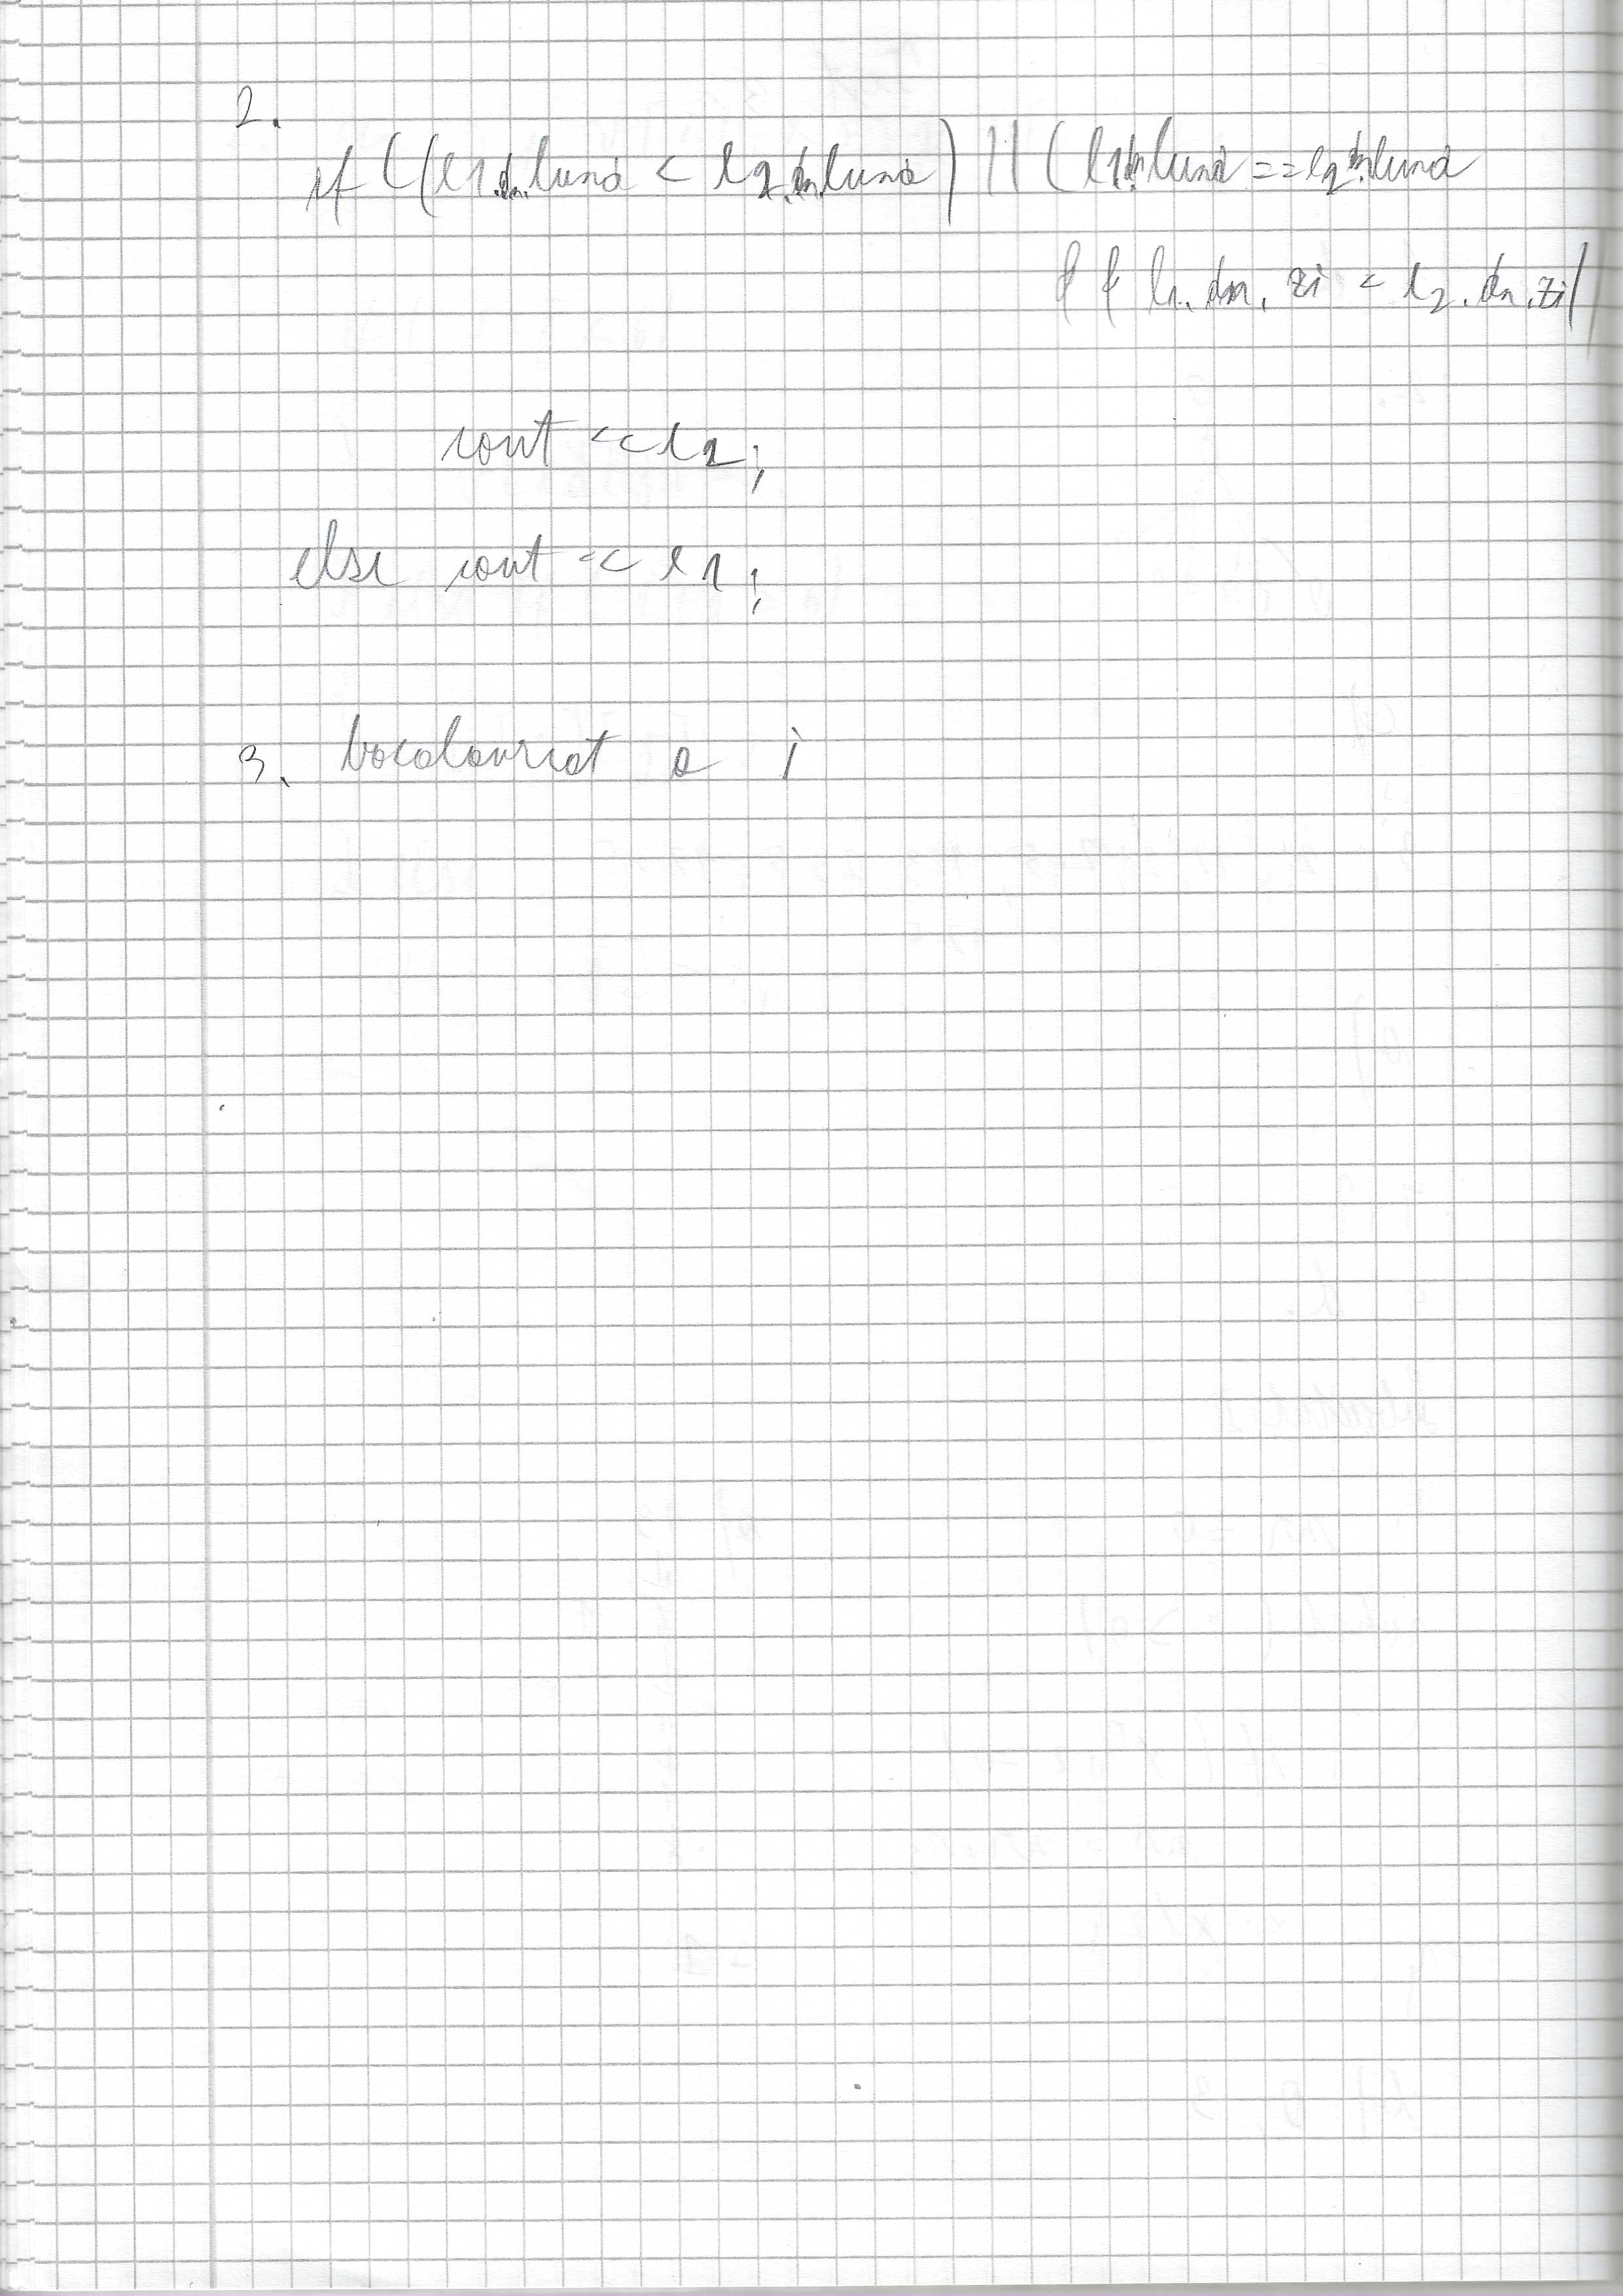 2.
if ((e1.dn.luna < e2.dn.luna) || (e1.dn.luna == e2.dn.luna
&& e1.dn.zi < e2.dn.zi)
cout << e2;
else cout << e1;
3. bacalaureat a i